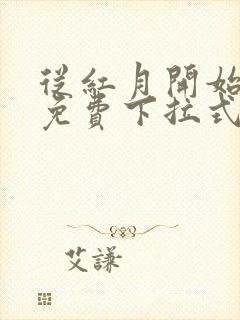 從紅月開始
免費下拉式
艾謙